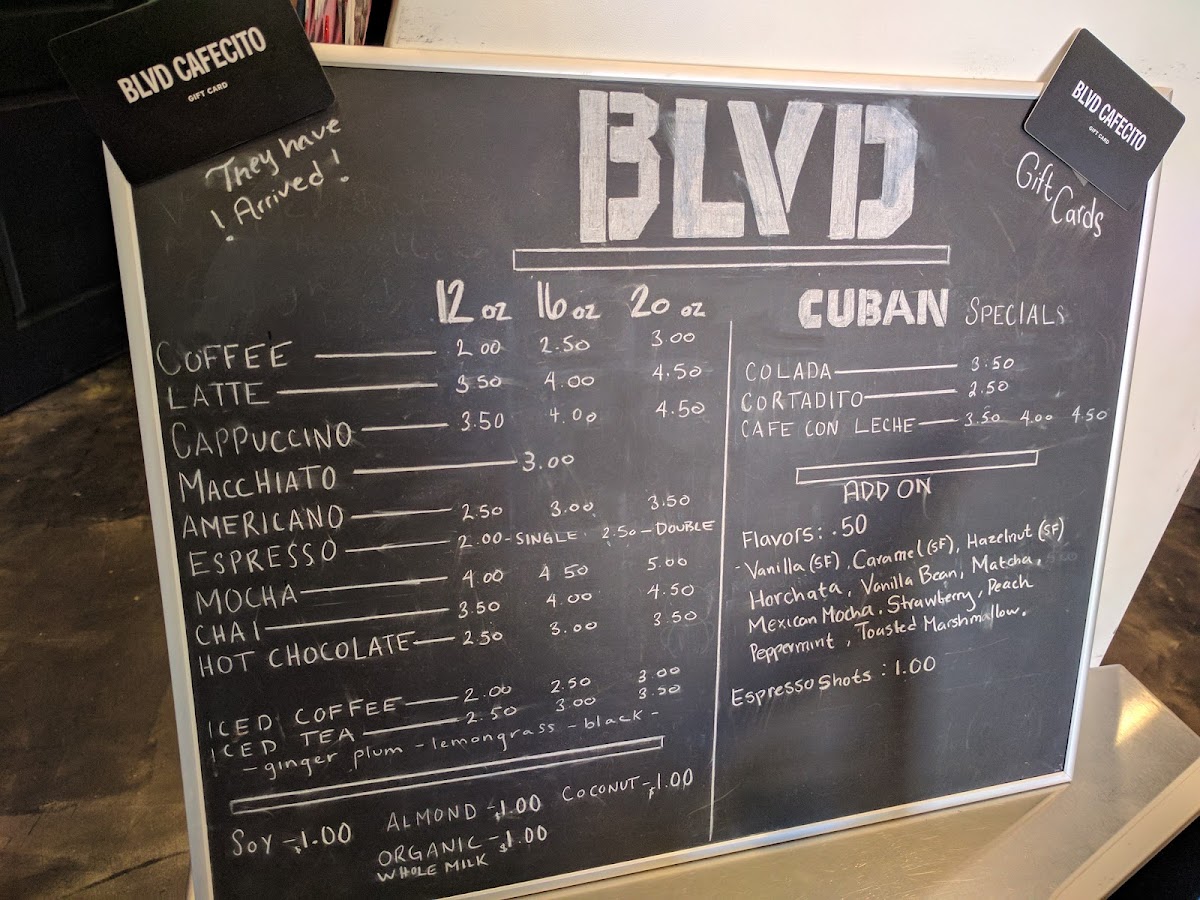 BLVD CAFECITO
GIFT CARD
They have
! Arrived!
BLVD
BLVD CAFECITO
GIFT CARD
Gift
Cards
12 oz 16 oz 20 oz
COFFEE 2.00 2.50 3.00
LATTE 3.50 4.00 4.50
CAPPUCCINO 3.50 4.00 4.50
MACCHIATO 3.00
AMERICANO 2.50 3.00 3.50
ESPRESSO 2.00-SINGLE 2.50-DOUBLE
MOCHA 4.00 4.50 5.00
CHAI 3.50 4.00 4.50
HOT CHOCOLATE 2.50 3.00 3.50
ICED COFFEE 2.00 2.50 3.00
ICED TEA 2.50 3.00 3.50
-ginger plum-lemongrass-black-
SOY -$1.00 ALMOND -$1.00 COCONUT -$1.00
ORGANIC -$1.00
WHOLE MILK
CUBAN SPECIALS
COLADA 3.50
CORTADITO 2.50
CAFE CON LECHE 3.50 4.00 4.50
ADD ON
Flavors: .50
-Vanilla (SF), Caramel (SF), Hazelnut (SF)
Horchata, Vanilla Bean, Matcha,
Mexican Mocha, Strawberry, Peach
Peppermint, Toasted Marshmallow.
Espresso Shots: 1.00